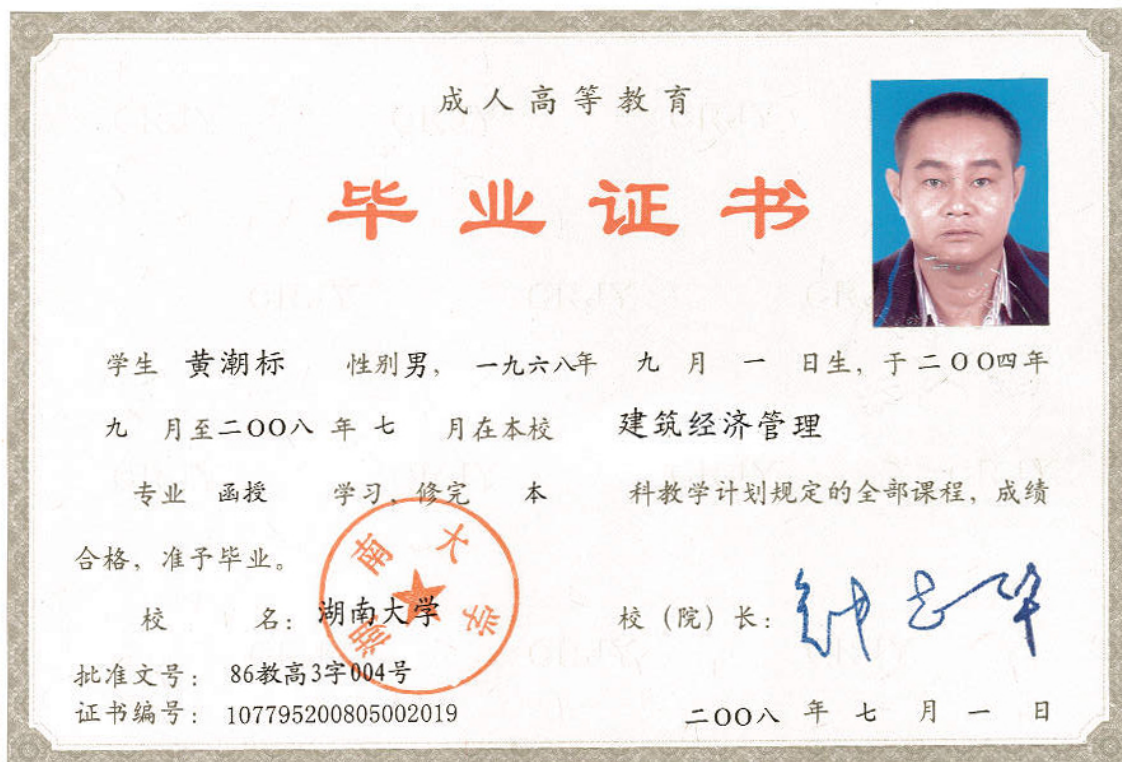 成人高等教育
毕业证书
学生 黄潮标 性别男，一九六八年 九 月 一 日生，于二OO四年
九 月至二OO八 年 七 月在本校 建筑经济管理
专业 函授 学习，修完 本 科教学计划规定的全部课程，成绩
合格，准予毕业。
校 名：湖南大学 校（院）长：钟志华
湖南大学
批准文号：86教高3字004号
证书编号：107795200805002019 二OO八 年 七 月 一 日